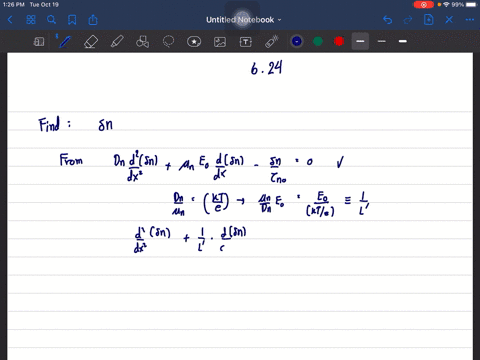 1:26 PM Tue Oct 19
99%
Untitled Notebook
6.24
Find : δn
From Dn d²(δn)/dx² + μn E0 d(δn)/dx - δn/τn0 = 0 √
Dn/μn = (kT/e) → μn/Dn E0 = E0/(kT/e) ≡ 1/L'
d²(δn)/dx² + 1/L' · d(δn)